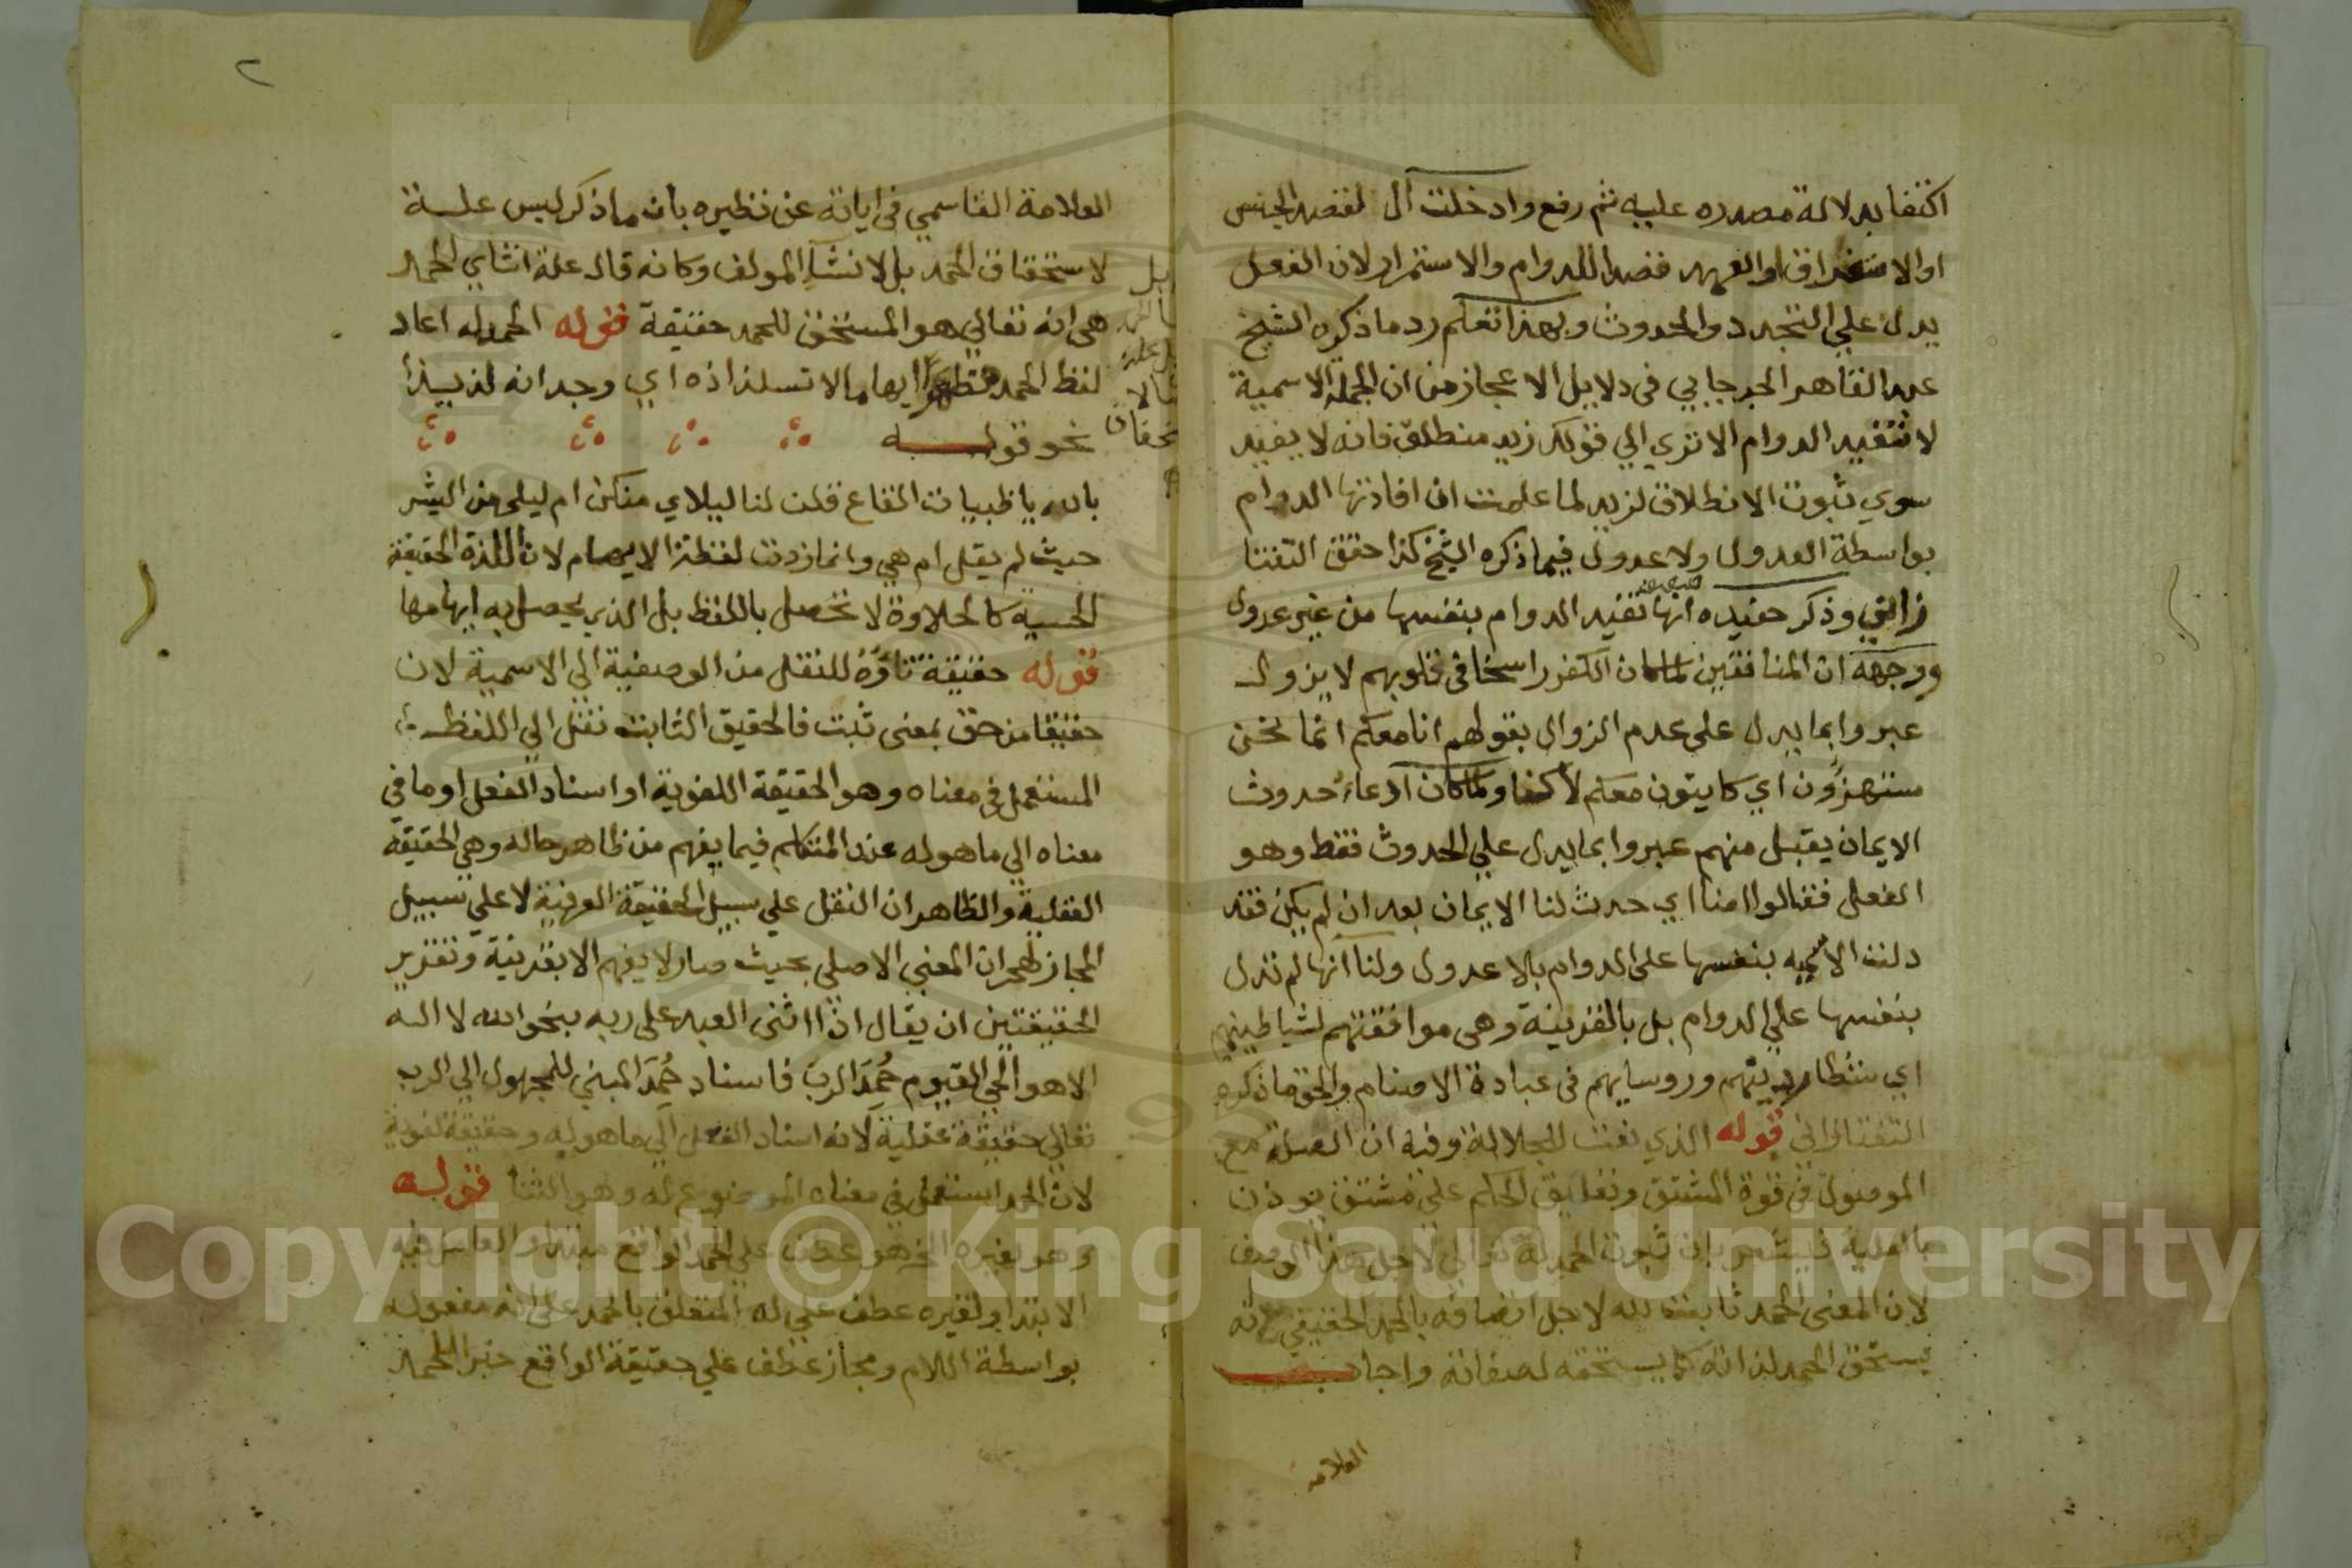 اكتفا بدلالة مصدره عليه ثم رفع وادخلت ال لقصد الجنس
او الاستغراق او العهد قصدا للدوام والاستمرار لان الفعل
يدل علي التجدد والحدوث وبهذا تعلم رد ما ذكره الشيخ
عبد القاهر الجرجاني في دلايل الاعجاز من ان الجملة الاسمية
لا تفيد الدوام الا تري الي قولك زيد منطلق فانه لا يفيد
سوي ثبوت الانطلاق لزيد لما علمت ان افادتها الدوام
بواسطة العدول ولا عدول فيما ذكره الشيخ كذا حقق التفتا
زاني وذكر حفيده انها تفيد الدوام بنفسها من غير عدول
ووجهه ان المنافقين لما كان الكفر راسخا في قلوبهم لا يزول
عبروا بما يدل علي عدم الزوال بقولهم انا معكم انما نحن
مستهزؤن اي كاينون معكم ولما كان ادعاء حدوث
الايمان يقبل منهم عبروا بما يدل علي الحدوث فقط وهو
الفعل فقالوا امنا اي حدث لنا الايمان بعد ان لم يكن فقد
دلت الاسميه بنفسها علي الدوام بلا عدول ولنا انها لم تدل
بنفسها علي الدوام بل بالقرينة وهي موافقتهم لشياطينهم
اي وروسايهم في عبادة الاصنام والحق ما ذكره
التفتازاني قوله الذي نعت للجلالة وفيه ان الصلة مع
الموصول في قوة المشتق وتعليق الحكم علي مشتق يوذن
بالعلية فيشعر بان ثبوت الحمد له تعالي لاجل هذا الوصف
لان المعني الحمد ثابت لله لاجل اتصافه بالحمد الحقيقي لانه
يستحق الحمد لذاته كما يستحقه لصفاته واجاب
العلامه
٢
العلامة القاسمي في اياته عن نظيره بان ما ذكر ليس علة
لاستحقاق الحمد بل لانشاء المولف وكانه قال علة انشاي الحمد
هي انه تعالي هو المستحق للحمد حقيقة قوله الحمد له اعاد
لفظ الحمد مظهرا ايهاما لاستلذاذه اي وجدانه لذيذا
نحو قوله
بالله يا ظبيات القاع قلن لنا ليلاي منكن ام ليلي من البشر
حيث لم يقل ام هي وانما زدت لفظة الايهام لان اللذة الحقيقة
الحسيه كالحلاوة لا تحصل باللفظ بل الذي يحصل به ايهامها
قوله حقيقة تاؤه للنقل من الوصفية الي الاسمية لان
حقيقا من حق بمعني ثبت فالحقيق الثابت نقل الي اللفظ
المستعمل في معناه وهو الحقيقة اللغوية او اسناد الفعل او ما في
معناه الي ما هو له عند المتكلم فيما يفهم من ظاهر حاله وهي الحقيقة
العقلية والظاهر ان النقل علي سبيل الحقيقة العرفية لا علي سبيل
المجاز لهجران المعني الاصلي بحيث صار لا يفهم الا بقرينة وتقرير
الحقيقتين ان يقال اذا اثني العبد علي ربه بنحو الله لا اله
الا هو الحي القيوم حُمِدَ الرب فاسناد حُمِدَ المبني للمجهول الي الرب
تعالي حقيقة عقلية لانه اسناد الفعل الي ما هو له وحقيقة لغوية
لان الحمد استعمل في معناه الموضوع له وهو الثنا قوله
وهو لغيره الخ هو عطف علي الحمد الواقع مبتدا والعامل فيه
الابتدا ولغيره عطف علي له المتعلق بالحمد علي انه مفعوله
بواسطة اللام ومجاز عطف علي حقيقة الواقع خبرا للحمد